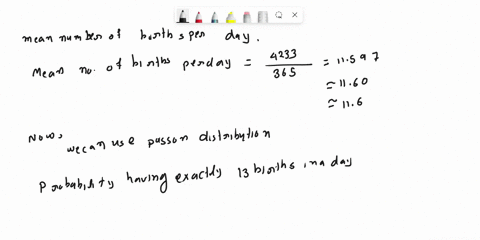 mean number of births per day.
Mean no. of births perday = 4233/365 = 11.597
≈ 11.60
≈ 11.6
Now,
we can use posson distribution
Probability having exactly 13 births in a day